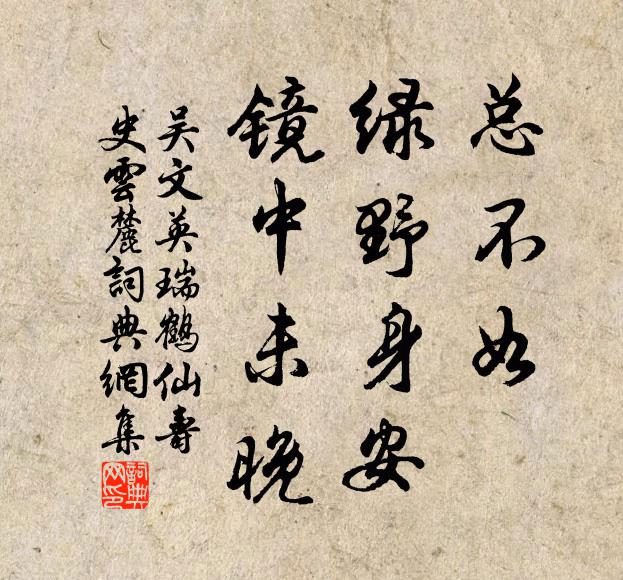 总不如
绿野身安
镜中未晚
吴文英瑞鹤仙寿
史云麓詞典網集
詞典
网印